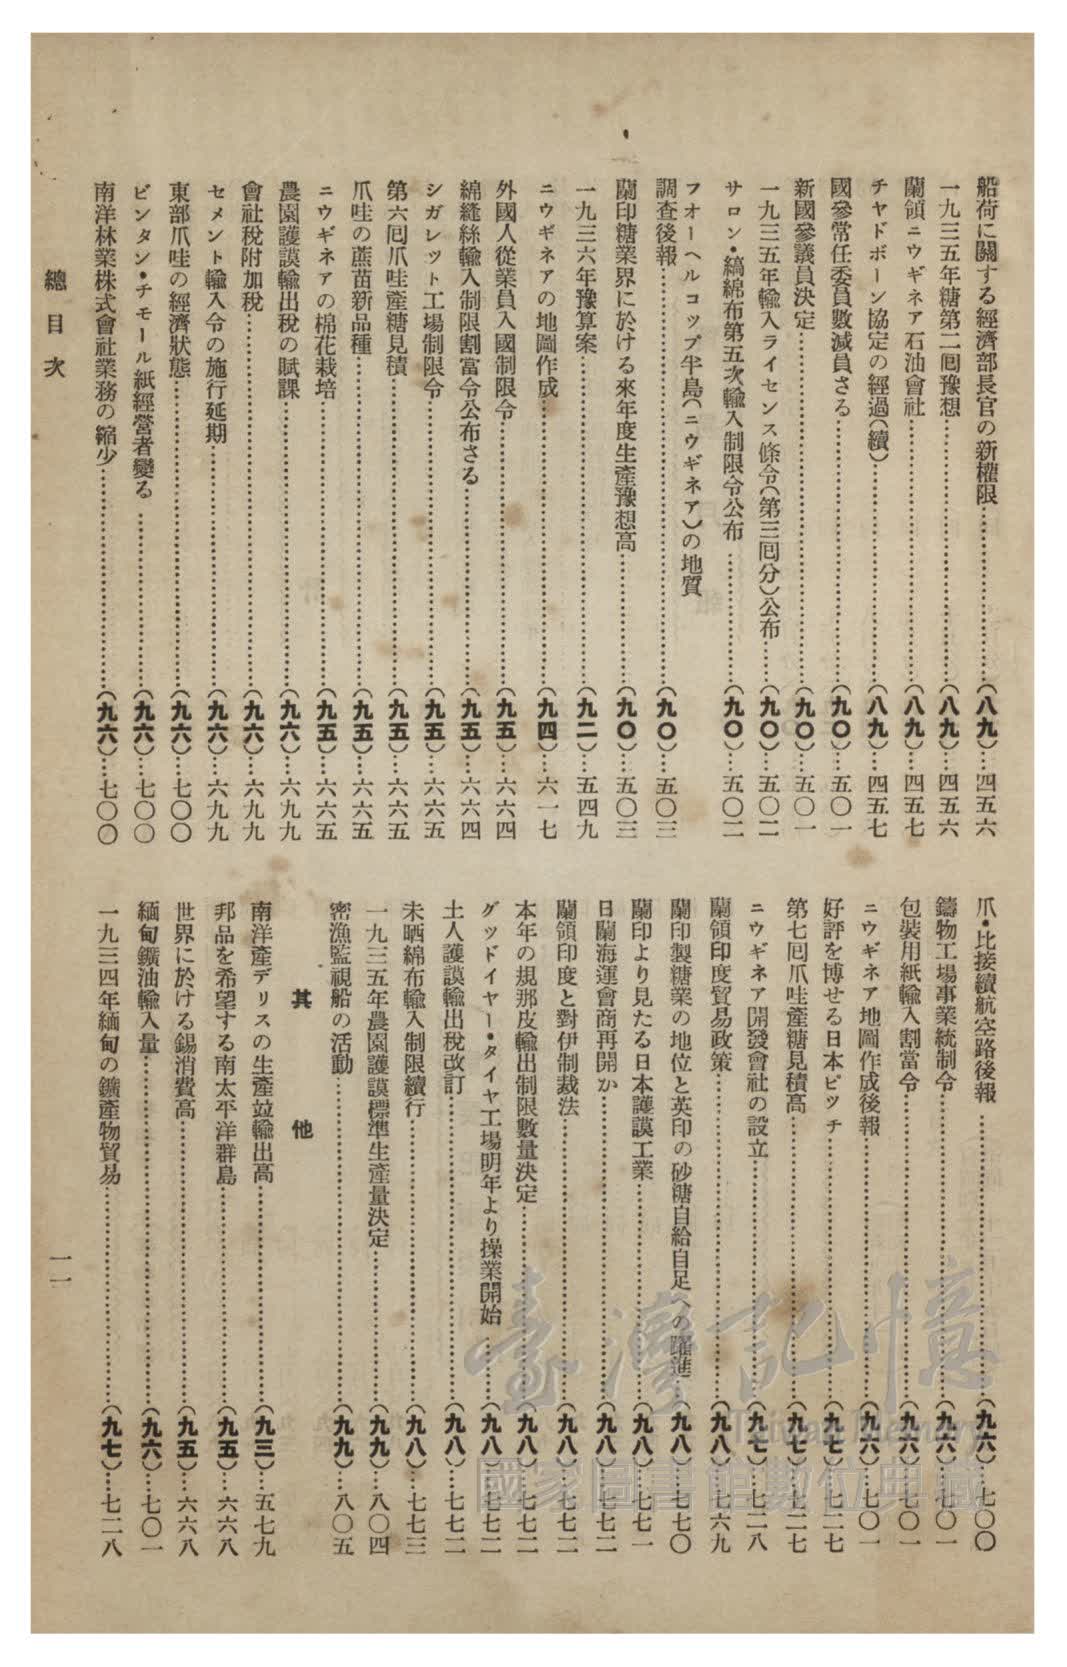 船荷に關する經濟部長官の新權限……(八九)…四五六
一九三五年糖第二囘豫想……(八九)…四五六
蘭領ニウギネア石油會社……(八九)…四五七
チヤドボーン協定の經過(續)……(八九)…四五七
國參常任委員數減員さる……(九〇)…五〇一
新國參議員決定……(九〇)…五〇一
一九三五年輸入ライセンス條令(第三囘分)公布……(九〇)…五〇二
サロン・縞綿布第五次輸入制限令公布……(九〇)…五〇二
フオーヘルコップ半島(ニウギネア)の地質
調査後報……(九〇)…五〇三
蘭印糖業界に於ける來年度生產豫想高……(九〇)…五〇三
一九三六年豫算案……(九二)…五四九
ニウギネアの地圖作成……(九四)…六一七
外國人從業員入國制限令……(九五)…六六四
綿縫絲輸入制限割當令公布さる……(九五)…六六四
シガレット工場制限令……(九五)…六六五
第六囘爪哇產糖見積……(九五)…六六五
爪哇の蔗苗新品種……(九五)…六六五
ニウギネアの棉花栽培……(九五)…六六五
農園護謨輸出稅の賦課……(九六)…六九九
會社稅附加稅……(九六)…六九九
セメント輸入令の施行延期……(九六)…六九九
東部爪哇の經濟狀態……(九六)…七〇〇
ビンタン・チモール紙經營者變る……(九六)…七〇〇
南洋林業株式會社業務の縮少……(九六)…七〇〇
爪・比接續航空路後報……(九六)…七〇〇
鑄物工場事業統制令……(九六)…七〇一
包裝用紙輸入割當令……(九六)…七〇一
ニウギネア地圖作成後報……(九六)…七〇一
好評を博せる日本ピッチ……(九七)…七二七
第七囘爪哇產糖見積高……(九七)…七二七
ニウギネア開發會社の設立……(九七)…七二八
蘭領印度貿易政策……(九八)…七六九
蘭印製糖業の地位と英印の砂糖自給自足への躍進……(九八)…七七〇
蘭印より見たる日本護謨工業……(九八)…七七一
日蘭海運會商再開か……(九八)…七七二
蘭領印度と對伊制裁法……(九八)…七七二
本年の規那皮輸出制限數量決定……(九八)…七七二
グッドイヤー・タイヤ工場明年より操業開始……(九八)…七七二
土人護謨輸出稅改訂……(九八)…七七二
未晒綿布輸入制限續行……(九八)…七七三
一九三五年農園護謨標準生產量決定……(九九)…八〇四
密漁監視船の活動……(九九)…八〇五
其他
南洋產デリスの生產竝輸出高……(九三)…五七九
邦品を希望する南太平洋群島……(九五)…六六八
世界に於ける錫消費高……(九五)…六六八
緬甸鑛油輸入量……(九六)…七〇一
一九三四年緬甸の鑛產物貿易……(九七)…七二八
總目次
一一
臺灣記憶
Taiwan Memory
國家圖書館數位典藏